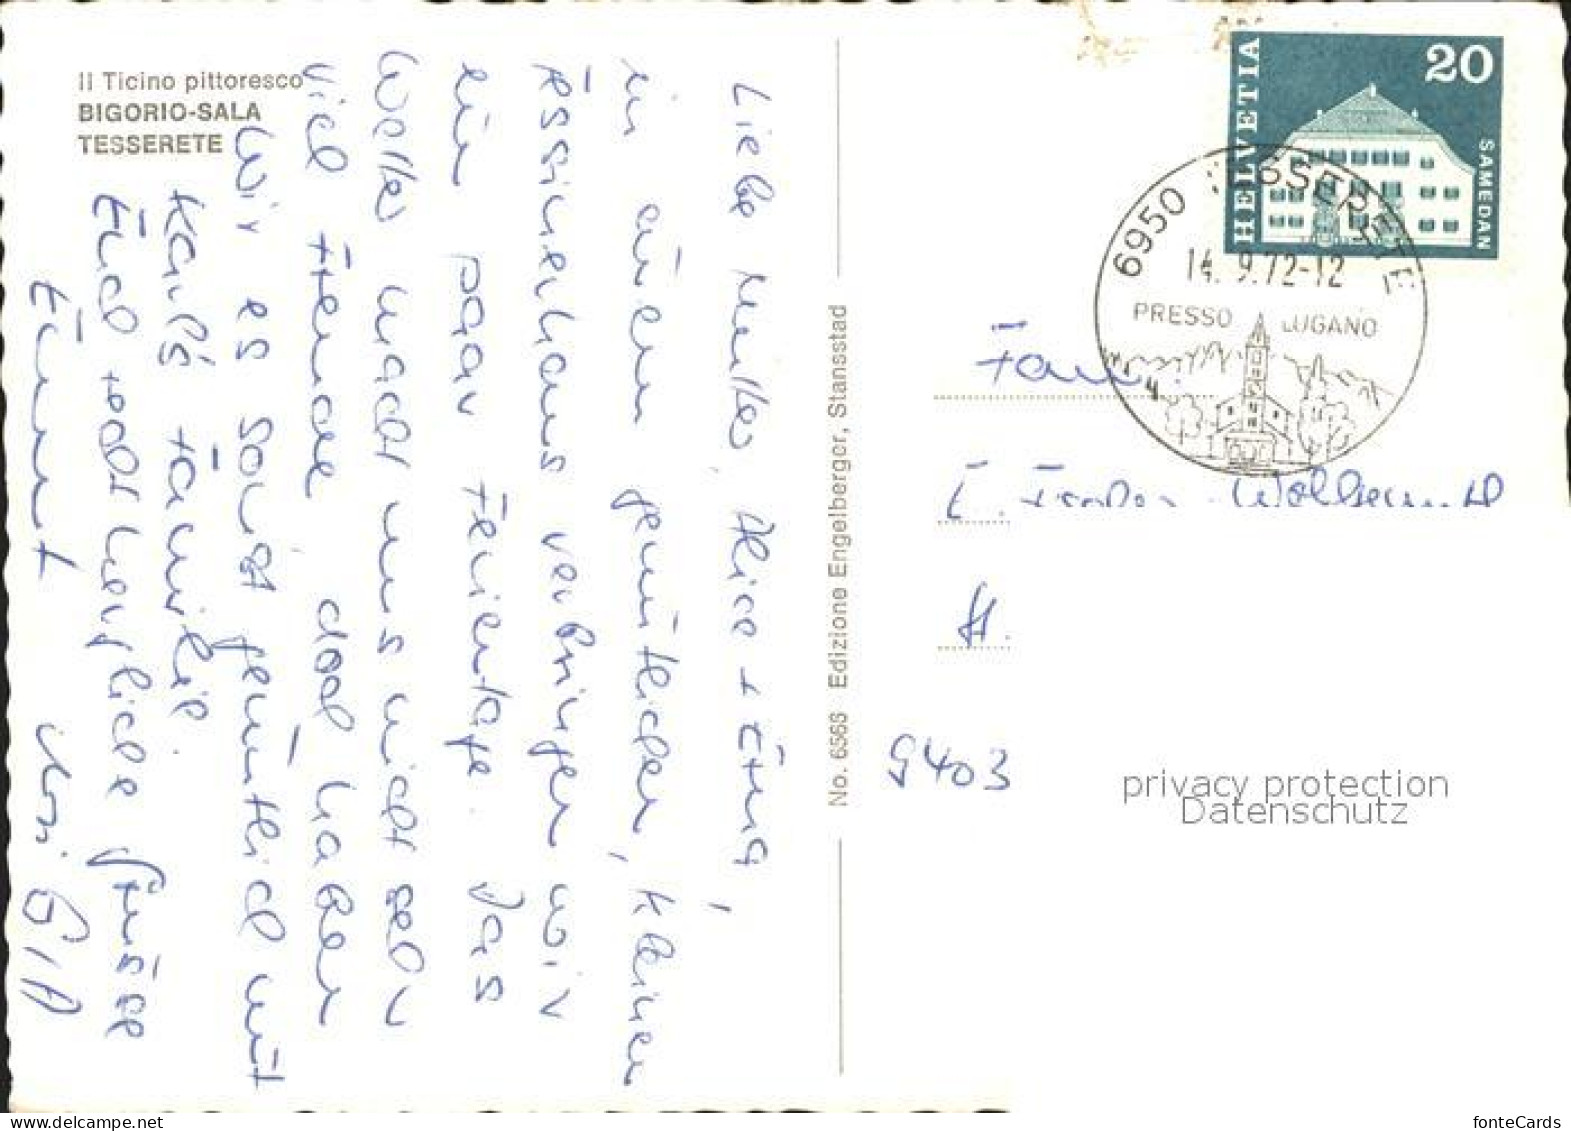 Il Ticino pittoresco
BIGORIO-SALA
TESSERETE
Liebe Mutter, Alice + Erna,
in einem gemütlichen, kleinen
Ferienhaus verbringen wir
ein paar Ferientage. Das
Wetter macht uns nicht sehr
viel Freude, doch haben
wir es sonst gemütlich mit
Karl's Familie.
Euch recht herzliche Grüsse
Ernst
No. 6566 Edizione Engelberger, Stansstad
HELVETIA
20
SAMEDAN
6950 TESSERETE
14.9.72-12
PRESSO LUGANO
Fam.
E.
9403
privacy protection
Datenschutz
fonteCards